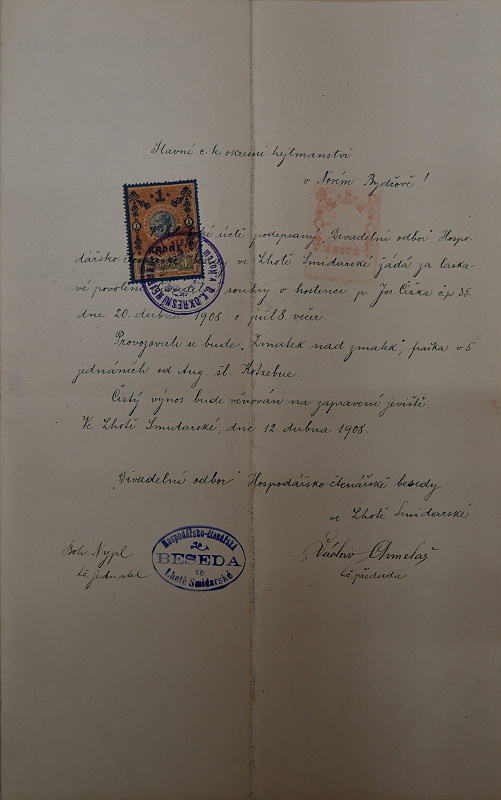 Slavné c. k. okresní hejtmanství
v Novém Bydžově!
1
úctě podepsaný „Divadelní odbor“ Hospo-
dářsko- besedy ve Lhotě Smidarské žádá za laska-
vé povolení souhry v hostinci p. Jos. Čížka č.p. 35.
dne 20. dubna 1908 o půl 8. večer.
Provozovati se bude „Zmatek nad zmatek“, fraška v 5
jednáních od Aug. šl. Kotzebue.
Čistý výnos bude věnován na zapravení jeviště.
Ve Lhotě Smidarské, dne 12. dubna 1908.
„Divadelní odbor“ Hospodářsko-čtenářské besedy
ve Lhotě Smidarské
Boh. Nypl
t.č. jednatel
Hospodářsko-čtenářská
BESEDA
ve
Lhotě Smidarské
Václav Chmelař
t.č. předseda